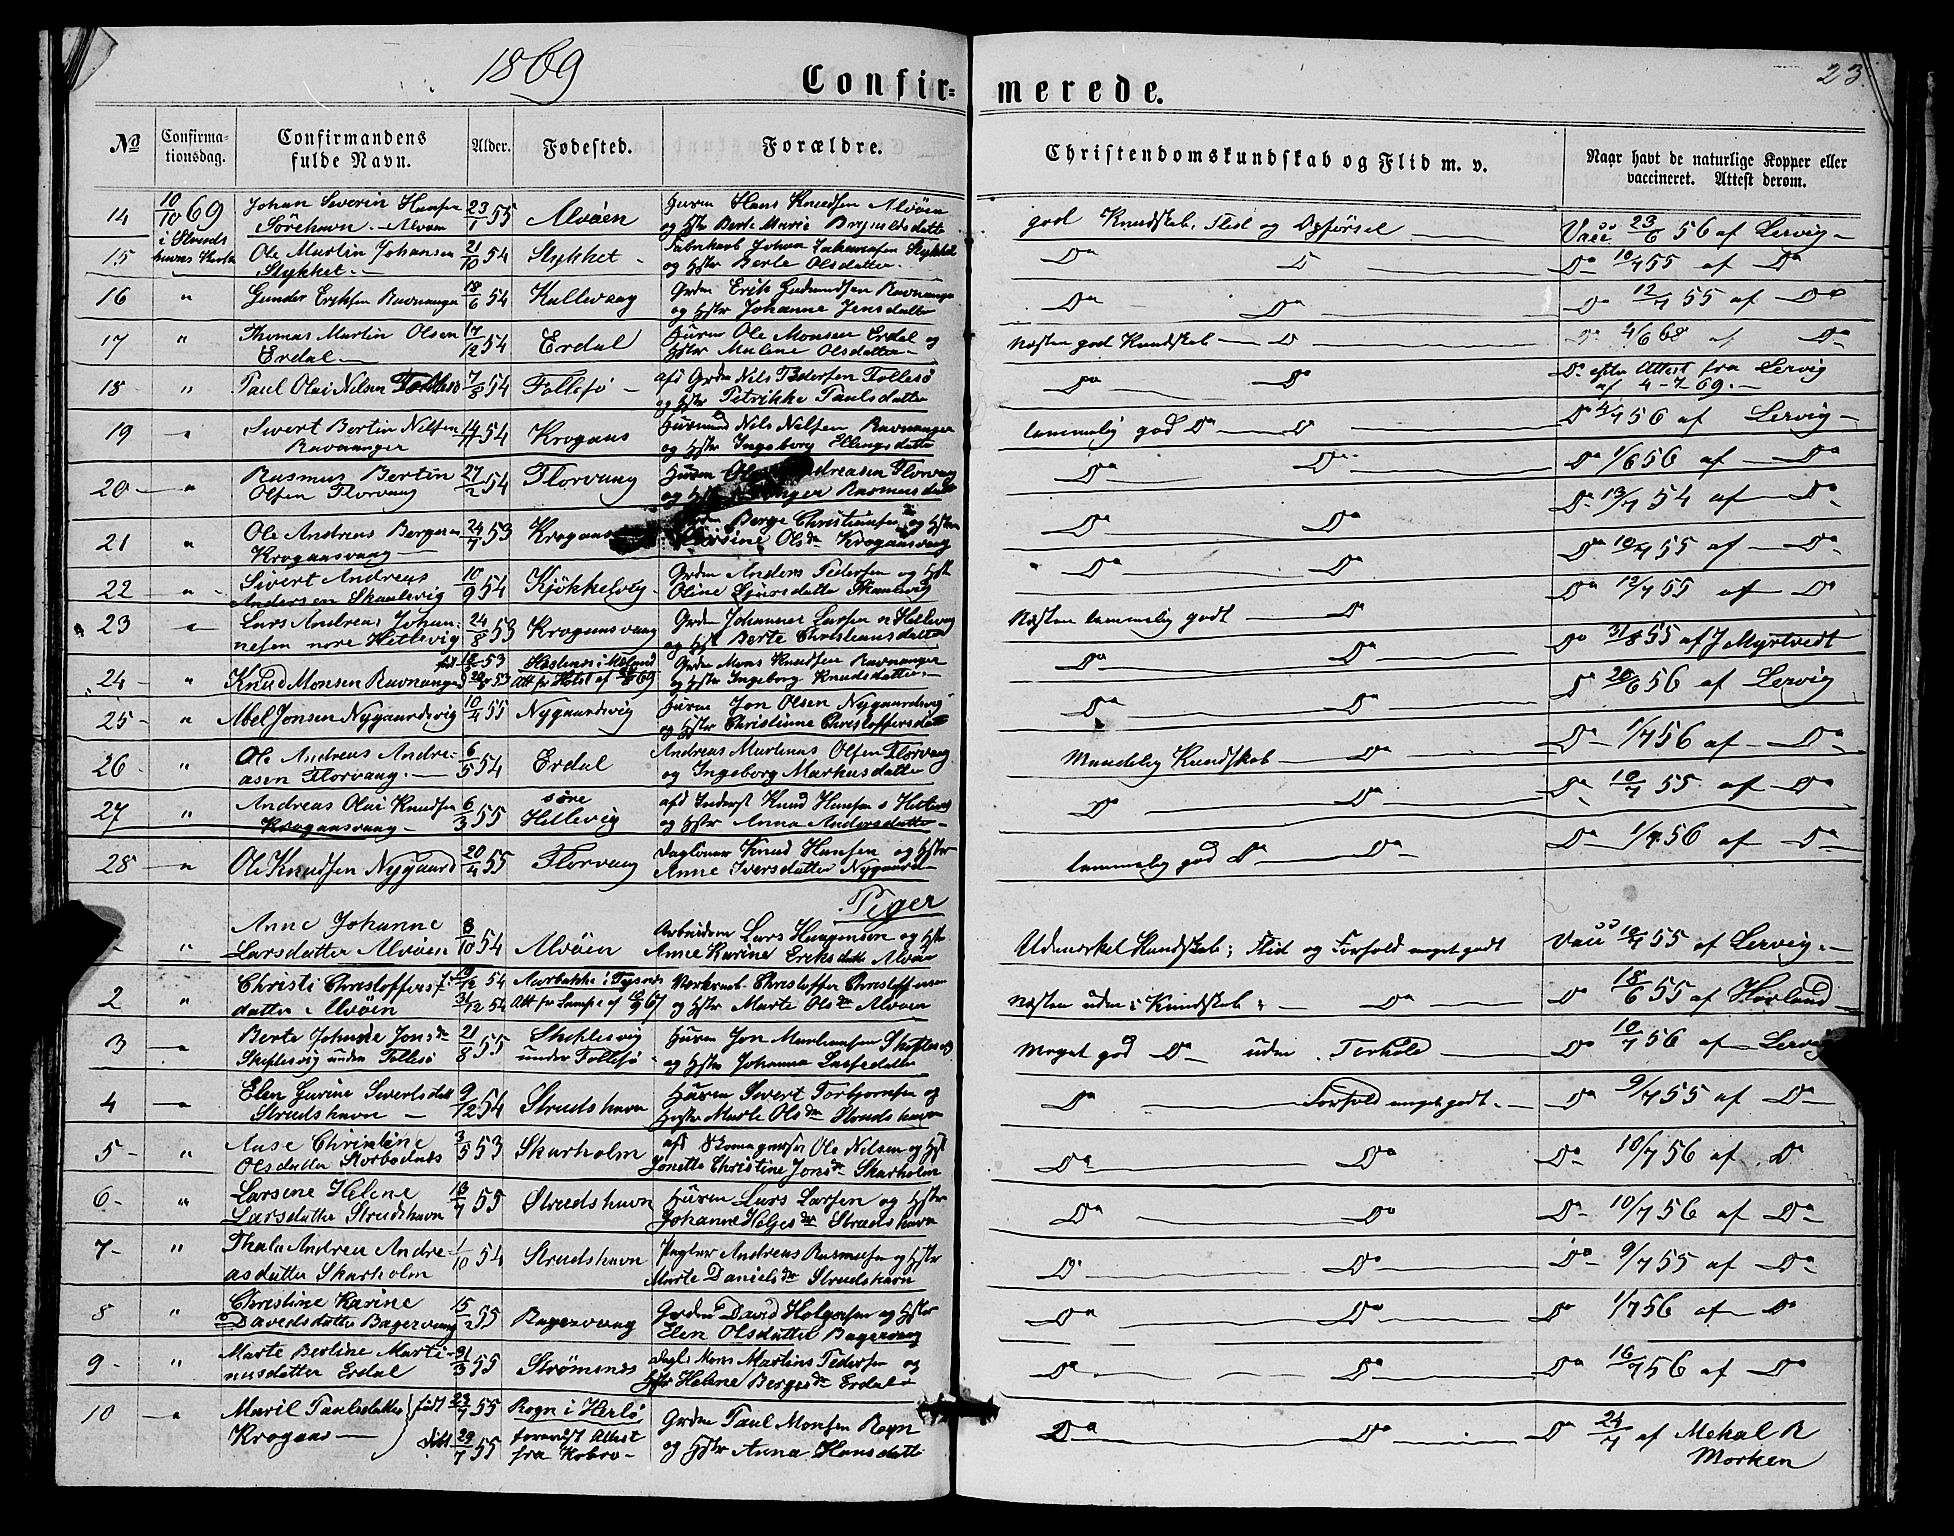 1869
23.
Confir= merede.
No
Confirma=
tionsdag.
Confirmandens
fulde Navn.
Alder.
Fødested.
Forældre.
Christendomskundskab og Flid m. v.
Naar havt de naturlige Kopper eller
vaccineret. Attest derom.
14 10/10 69 Johan Severin Hansen 23/1 55 Alvøen Hans Knudsen Alvøen god Kundskab, Flid og Opførsel Vacc 23/6 56 af Lervig
Sørehavn Alvøen og Hstr Berte Marie Brynildsdatter
15 Ole Martin Johansen 21/10 54 Stykket Fabrikarb Johan Johannesen Stykket Do Do Do 10/7 55 af Do
Stykket og Hstr Berte Olsdatter
16 " Gunder Eriksen Ravnanger 18/6 54 Kallevaag Grdm Erik Gudmundsen Ravnanger Do Do Do 12/7 55 af Do
og Hstr Johanne Jensdatter
17 " Thomas Martin Olsen 17/12 54 Erdal Husm Ole Monsen Erdal og Næsten god Kundskab Do Do 4/6 68 af Do
Erdal Hstr Malene Olsdatter
18 " Paul Olai Nilsen Follesø 7/8 54 Follesø afd Grdm Nils Pedersen Follesø Do Do Do efter Attest fra Lervig
og Hstr Petrikke Paulsdatter af 4-7 69.
19 " Sivert Bertin Nilsen 14/11 54 Krogaas Husmand Nils Nilsen Ravnanger temmelig god Do Do Do 56 af Lervig
Ravnanger og Hstr Ingeborg Ellingsdatter
20 " Rasmus Bertin 27/2 54 Florvaag Husm Andreasen Florvaag Do Do Do 1/6 56 af Do
Olsen Florvaag og Hstr Rasmusdatter
21 " Ole Andreas Bergesen 24/7 53 Krogaas Berge Christiansen og Hstr Do Do Do 13/7 54 af Do
Krogaasvaag Olsdr Krogaasvaag
22 " Sivert Andreas 10/9 54 Kjøkkelvig Grdm Anders Pedersen og Hstr Do Do Do 10/7 55 af Do
Andersen Skaalevig Oline Sjursdatter Skaalevig Do 12/7 55 af Do
23 " Lars Andreas Johan- 24/8 53 Krogaasvaag Grdm Johannes Larsen n Hetlevig Næsten temmelig godt Do
nesen nore Hetlevig og Hst Berte Christiansdatter Do 31/8 55 af J Myrtvedt
24 " Knud Monsen Ravnanger fød 53 Hastenes i Mæland Grdm Mons Knudsen Ravnanger Do Do
53 Att fr Holst af 69 og Hstr Ingeborg Knudsdatter Do 20/6 56 af Lervig
25 " Abel Jonsen Nygaardsvig 10/4 55 Nygaardsvig Husm Jon Olsen Nygaardsvig Do Do
og Hstr Christianne Christoffersdatter Do 1/7 56 af Do
26 " Ole Andreas Andre- 6/5 54 Erdal Andreas Martinus Olsen Florvaag Maadelig Kundskab Do
asen Florvaag. og Ingeborg Markusdatter Do 10/7 55 af Do
27 " Andreas Olai Knudsen 6/3 55 søre Hetlevig afd Inderst Knud Hansen s Hetlevig Do Do
Krogaasvaag og Hstr Anna Andersdatter Do 1/7 56 af Do
28 " Ole Knudsen Nygaard 20/4 55 Florvaag Daglønner Knud Hansen og Hstr temmelig god Do Do
Anne Iversdatter Nygaard
Piger
" Anne Johanne 8/10 54 Alvøen Arbeidsm Lars Haagensen og Hstr Udmærket Kundskab; Flid og Forhold meget godt Vacc 10/7 55 af Lervig.
Larsdatter Alvøen Anne Karine Eriksdatter Alvøen
2 " Christi Christoffers- f. 19/12 54 Aarbakke i Tysnes Værksarb Christoffer Christoffersen Næsten udm: Kundskab; Do Do 18/6 55 af Hovland
datter Alvøen 31/12 54 Att fr Lampe af 67 og Hstr Marte Olsdr Alvøen
3 " Berte Johanne Jonsdr 21/8 55 Skiftesvig Husm Jon Mathiassen Skiftesvig Meget god Do udm. Forhold Do 10/7 56 af Lervig
Skiftesvig under Follesø under Follesø og Hstr Johanna Larsdatter
4 " Elen Gurine Sivertsdatt 9/12 54 Strudshavn Husm Sivert Torbjørnsen og Do Forhold meget godt. Do 9/7 55 af Do
Strudshavn Hustr Marte Olsdr Strudshavn
5 " Aase Christine 3/5 53 Skarholm afd Ole Nilsen og Hst Do Do Do 10/7 56 af Do
Olsdatter Storbodnæs Jonette Christine Jonsdr Skarholm
6 " Larsine Helene 13/7 55 Strudshavn Husm Lars Larsen og Hstr Do Do Do 10/7 56 af Do
Larsdatter Strudshavn Johanne Helgesdr Strudshavn
7 " Thale Andrea Andre- 1/10 54 Strudshavn Andreas Rasmussen og Hstr Do Do Do 9/7 55 af Do
asdatter Skarholm Marte Danielsdr Strudshavn
8 " Christine Karine 15/2 55 Bagervaag Grdm David Helgesen og Hstr Do Do Do 1/7 56 af Do
Davidsdatter Bagervaag Elen Olsdatter Bagervaag
9 " Marte Bertine Marti- 31/3 55 Strømsnes Dagl Mons Martins Pedersen og Do Do Do 16/7 56 af Do
nusdatter Erdal Hstr Helene Bergesdr Erdal
10 " Marit Paulsdatter født 23/7 55 Rogn i Herlø Grdm Paul Monsen Rogn Do Do Do 24/7 af Mekal R
Krogaas døbt 29/7 55 forandst Attest og Hstr Anna Hansdatt Morken
fra Kobro